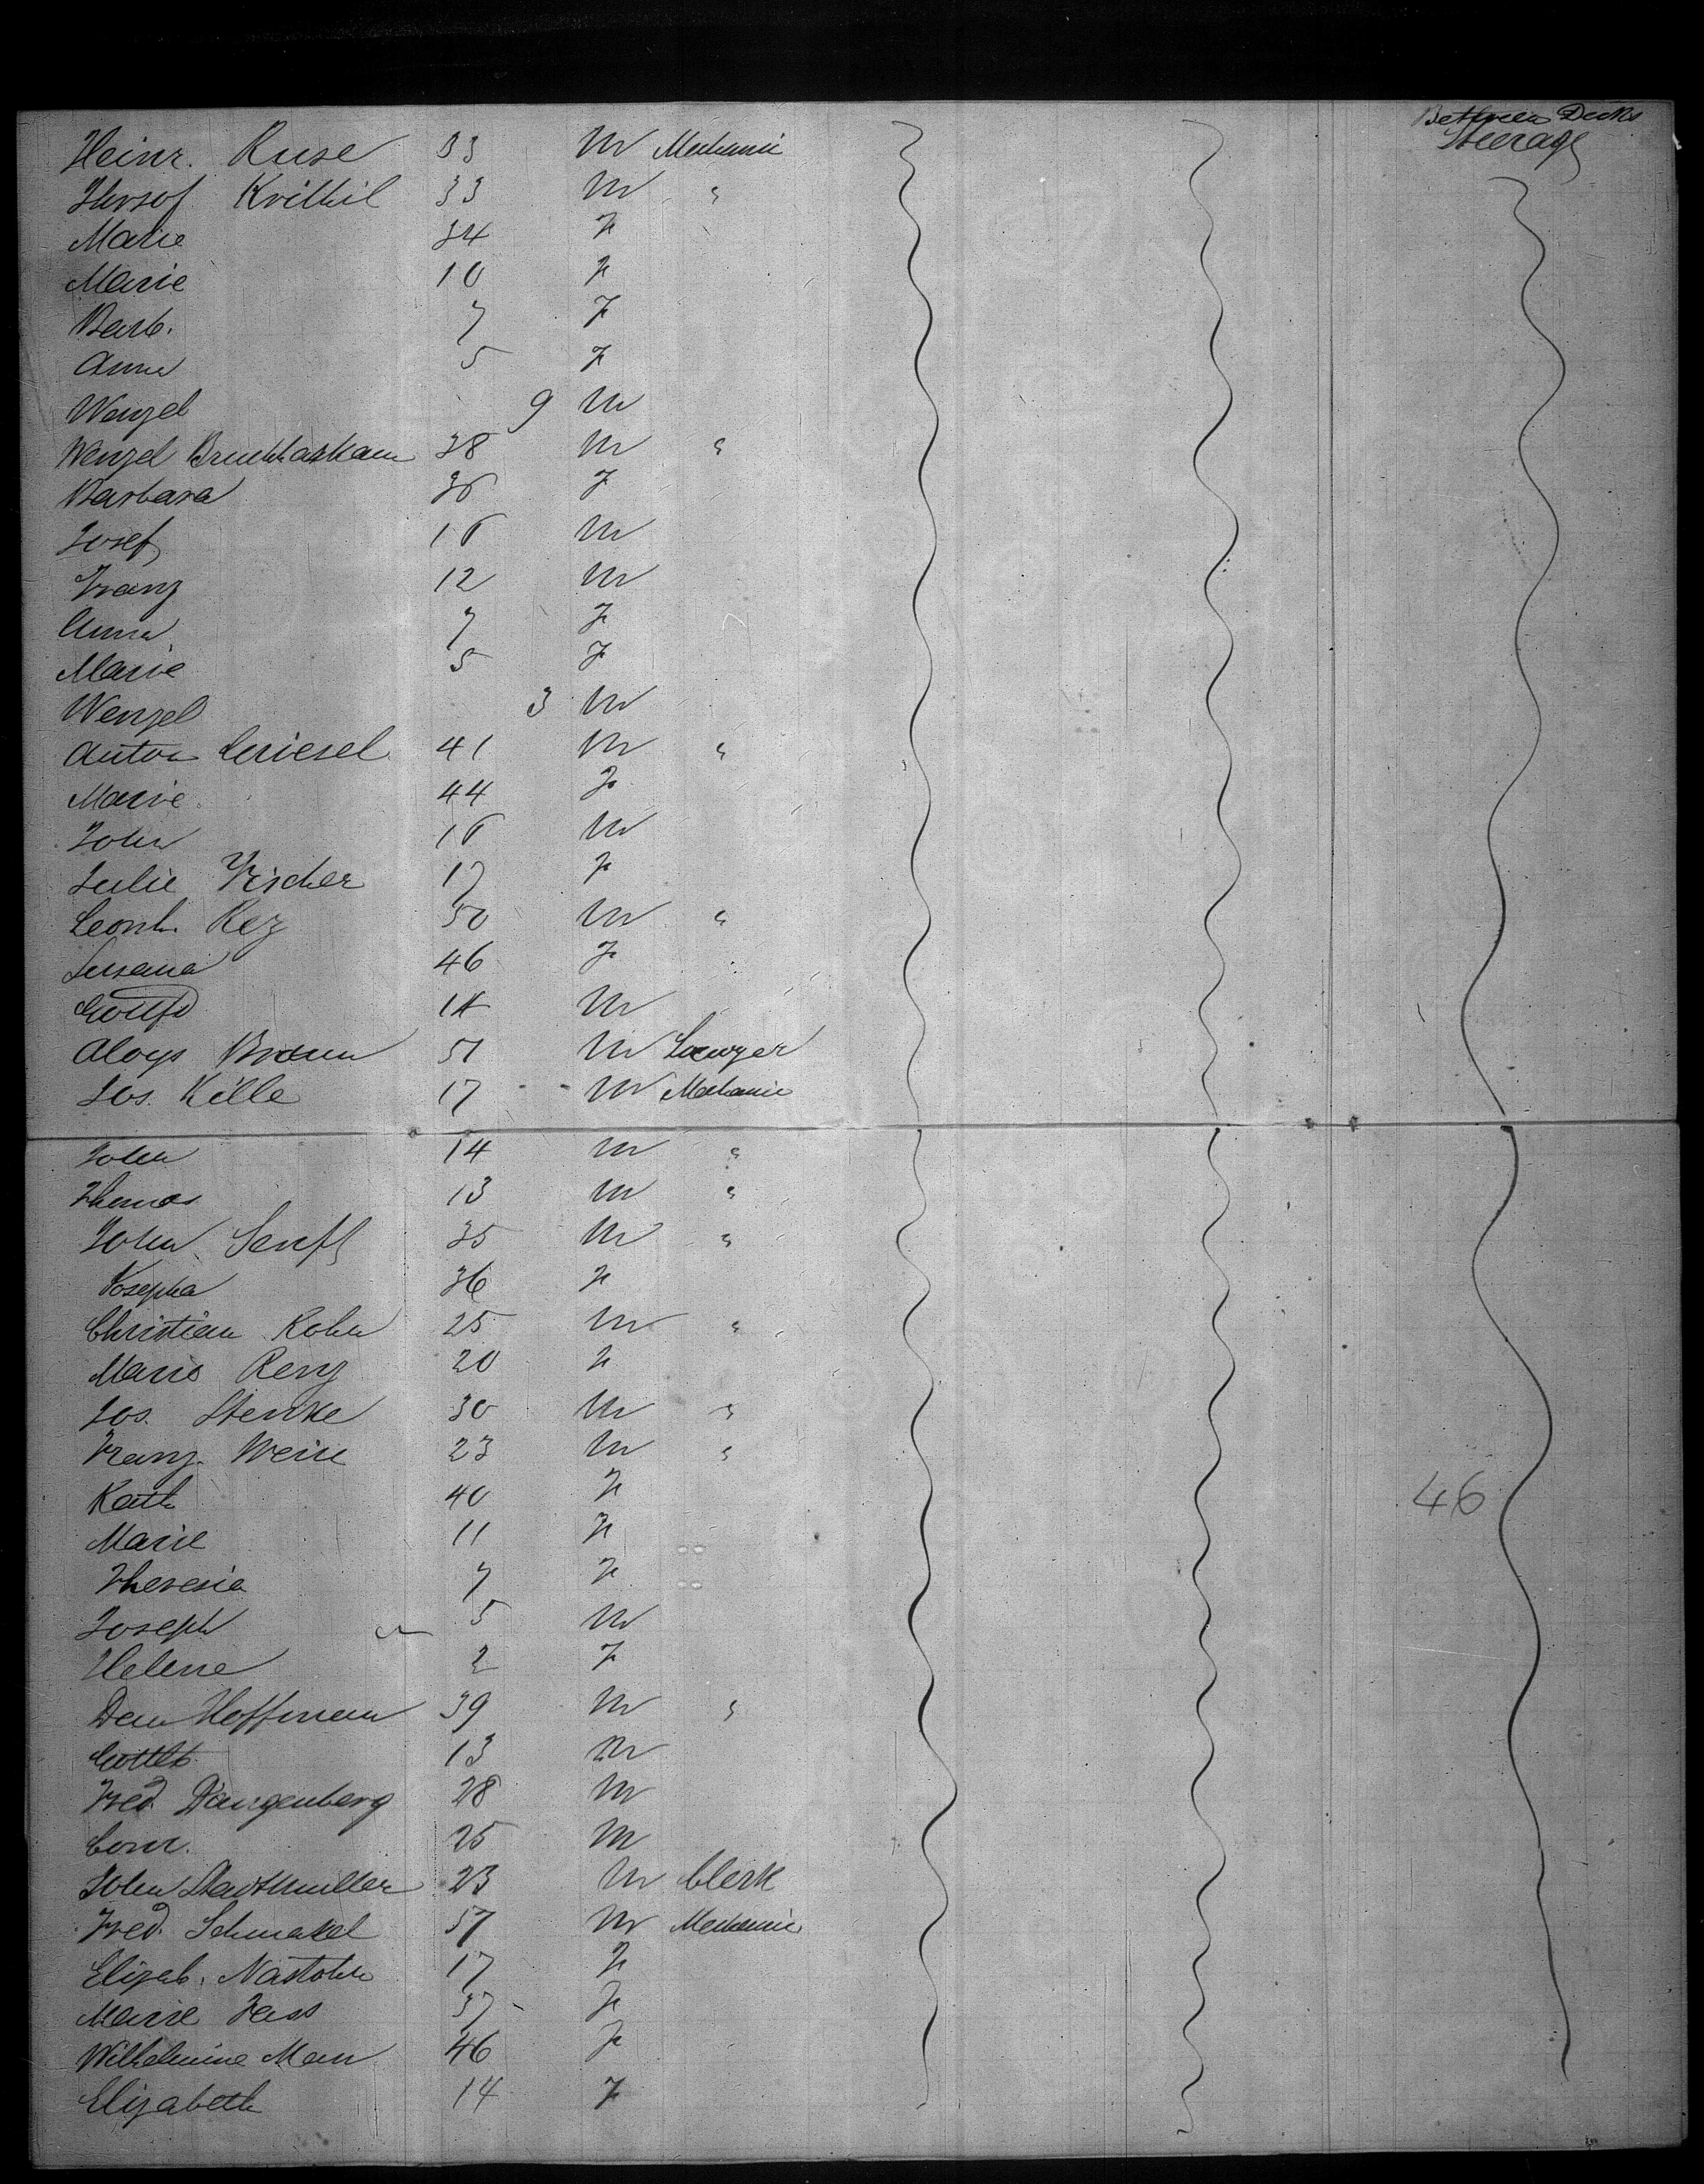 Between Decks
Steerage
Heinr. Ruse 33 M Mechanic
Josef 33 M "
Marie 34 F
Marie 10 F
Barb. 7 F
Anna 5 F
Wenzel 9 M
Wenzel 38 M "
Barbara 36 F
Josef 16 M
Franz 12 M
Anna 7 F
Marie 5 F
Wenzel 3 M
Anton Criesel 41 M "
Marie 44 F
John 16 M
Julie Fischer 17 F
Leonh. Rez 50 M "
Susana 46 F
Gottfd 14 M
Aloys Braun 51 M Lawyer
Jos. Kille 17 M Mechanic
John 14 M "
Thomas 13 M "
John Senft 35 M "
Josepha 36 F
Christian Kohn 25 M "
Marie Renz 20 F
Jos. Stenke 30 M "
Franz Weiss 23 M "
Kath 40 F
Marie 11 F
46
Theresia 7 F
Joseph 5 M
Helene 2 F
Dan Hoffmann 39 M "
Gottlb 13 M
Fred. Dangenberg 28 M
Conr. 25 M
John Stadtmuller 23 M Clerk
Fred. Schmakel 57 M Mechanic
Elizab. Nastohn 17 F
Marie Fass 37 F
Wilhelmine Man 46 F
Elizabeth 14 F